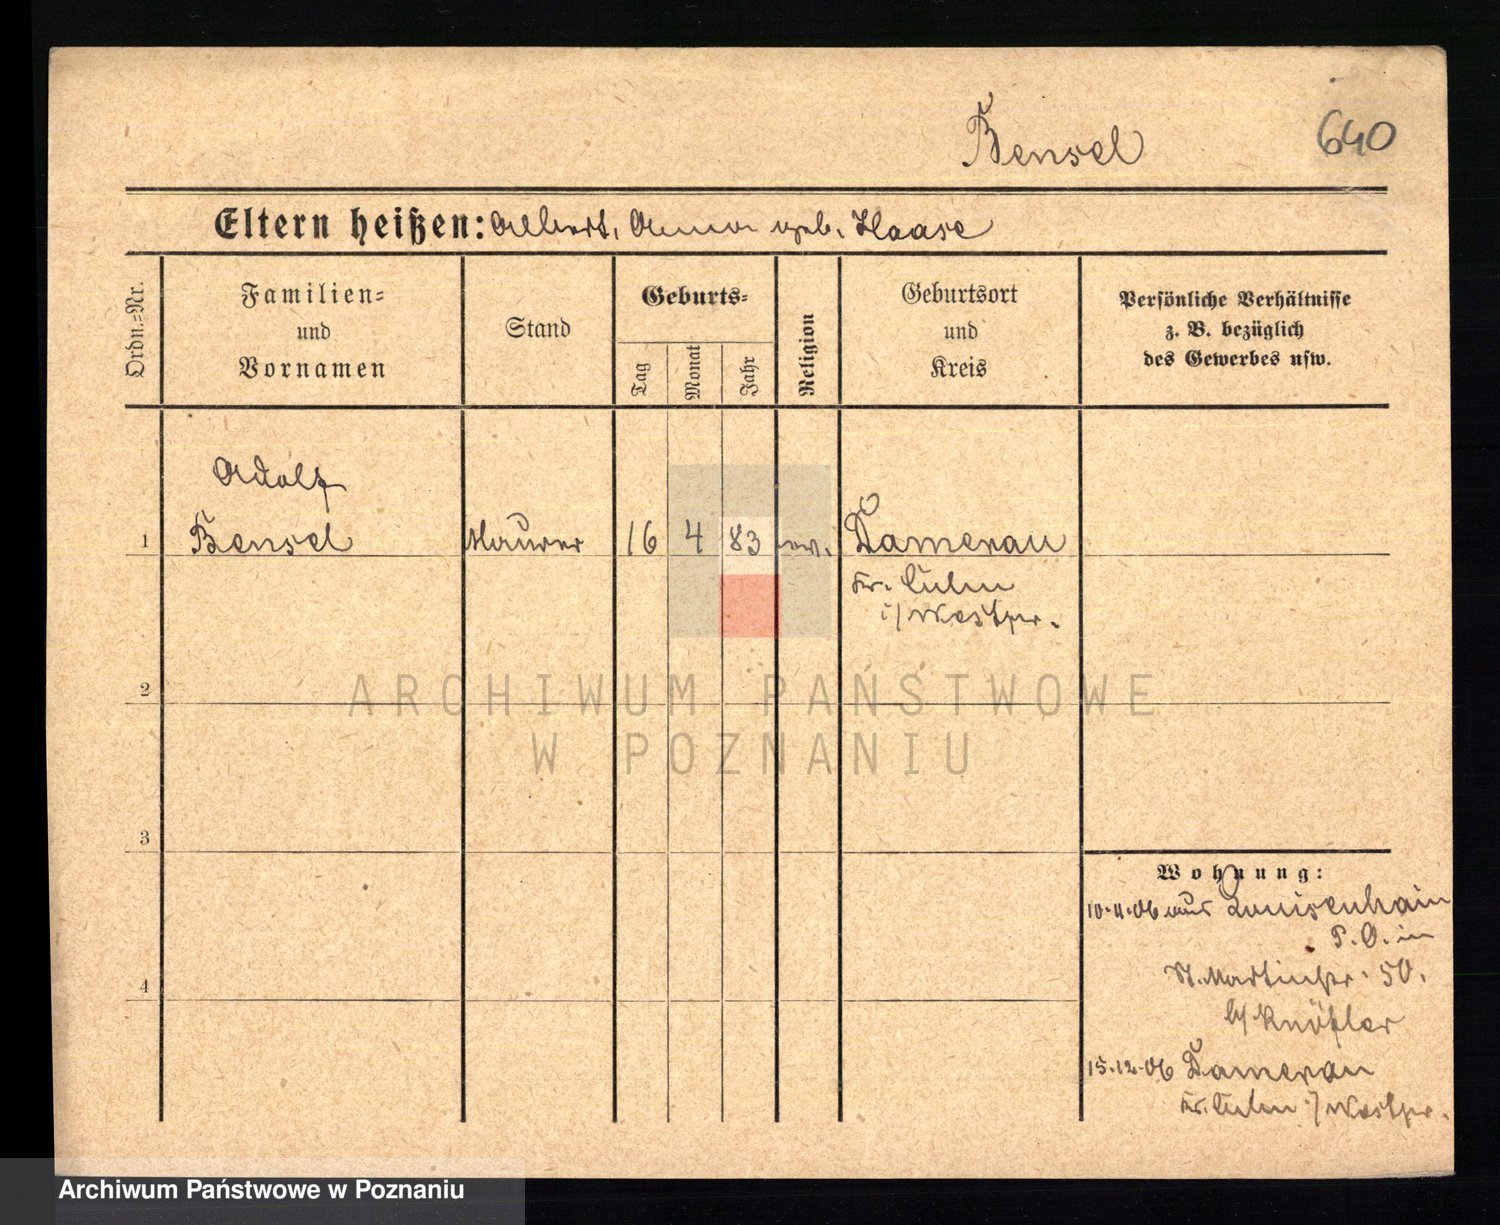 Bensel
640
Eltern heißen: Albert, Anna geb. Haase
Ordn.=Nr.
Familien=
und
Vornamen
Stand
Geburts=
Tag
Monat
Jahr
Religion
Geburtsort
und
Kreis
Persönliche Verhältnisse
z. B. bezüglich
des Gewerbes usw.
Adolf
1 Bensel Maurer 16 4 83 ev. Damerau
Kr. Culm
i/ Westpr.
2
ARCHIWUM PAŃSTWOWE
W POZNANIU
3
4
Wohnung:
10.4.06 aus Louisenhain
P.O. in
St. Martinstr. 50.
b/
15.12.06 Damerau
Kr. Culm i/ Westpr.
Archiwum Państwowe w Poznaniu